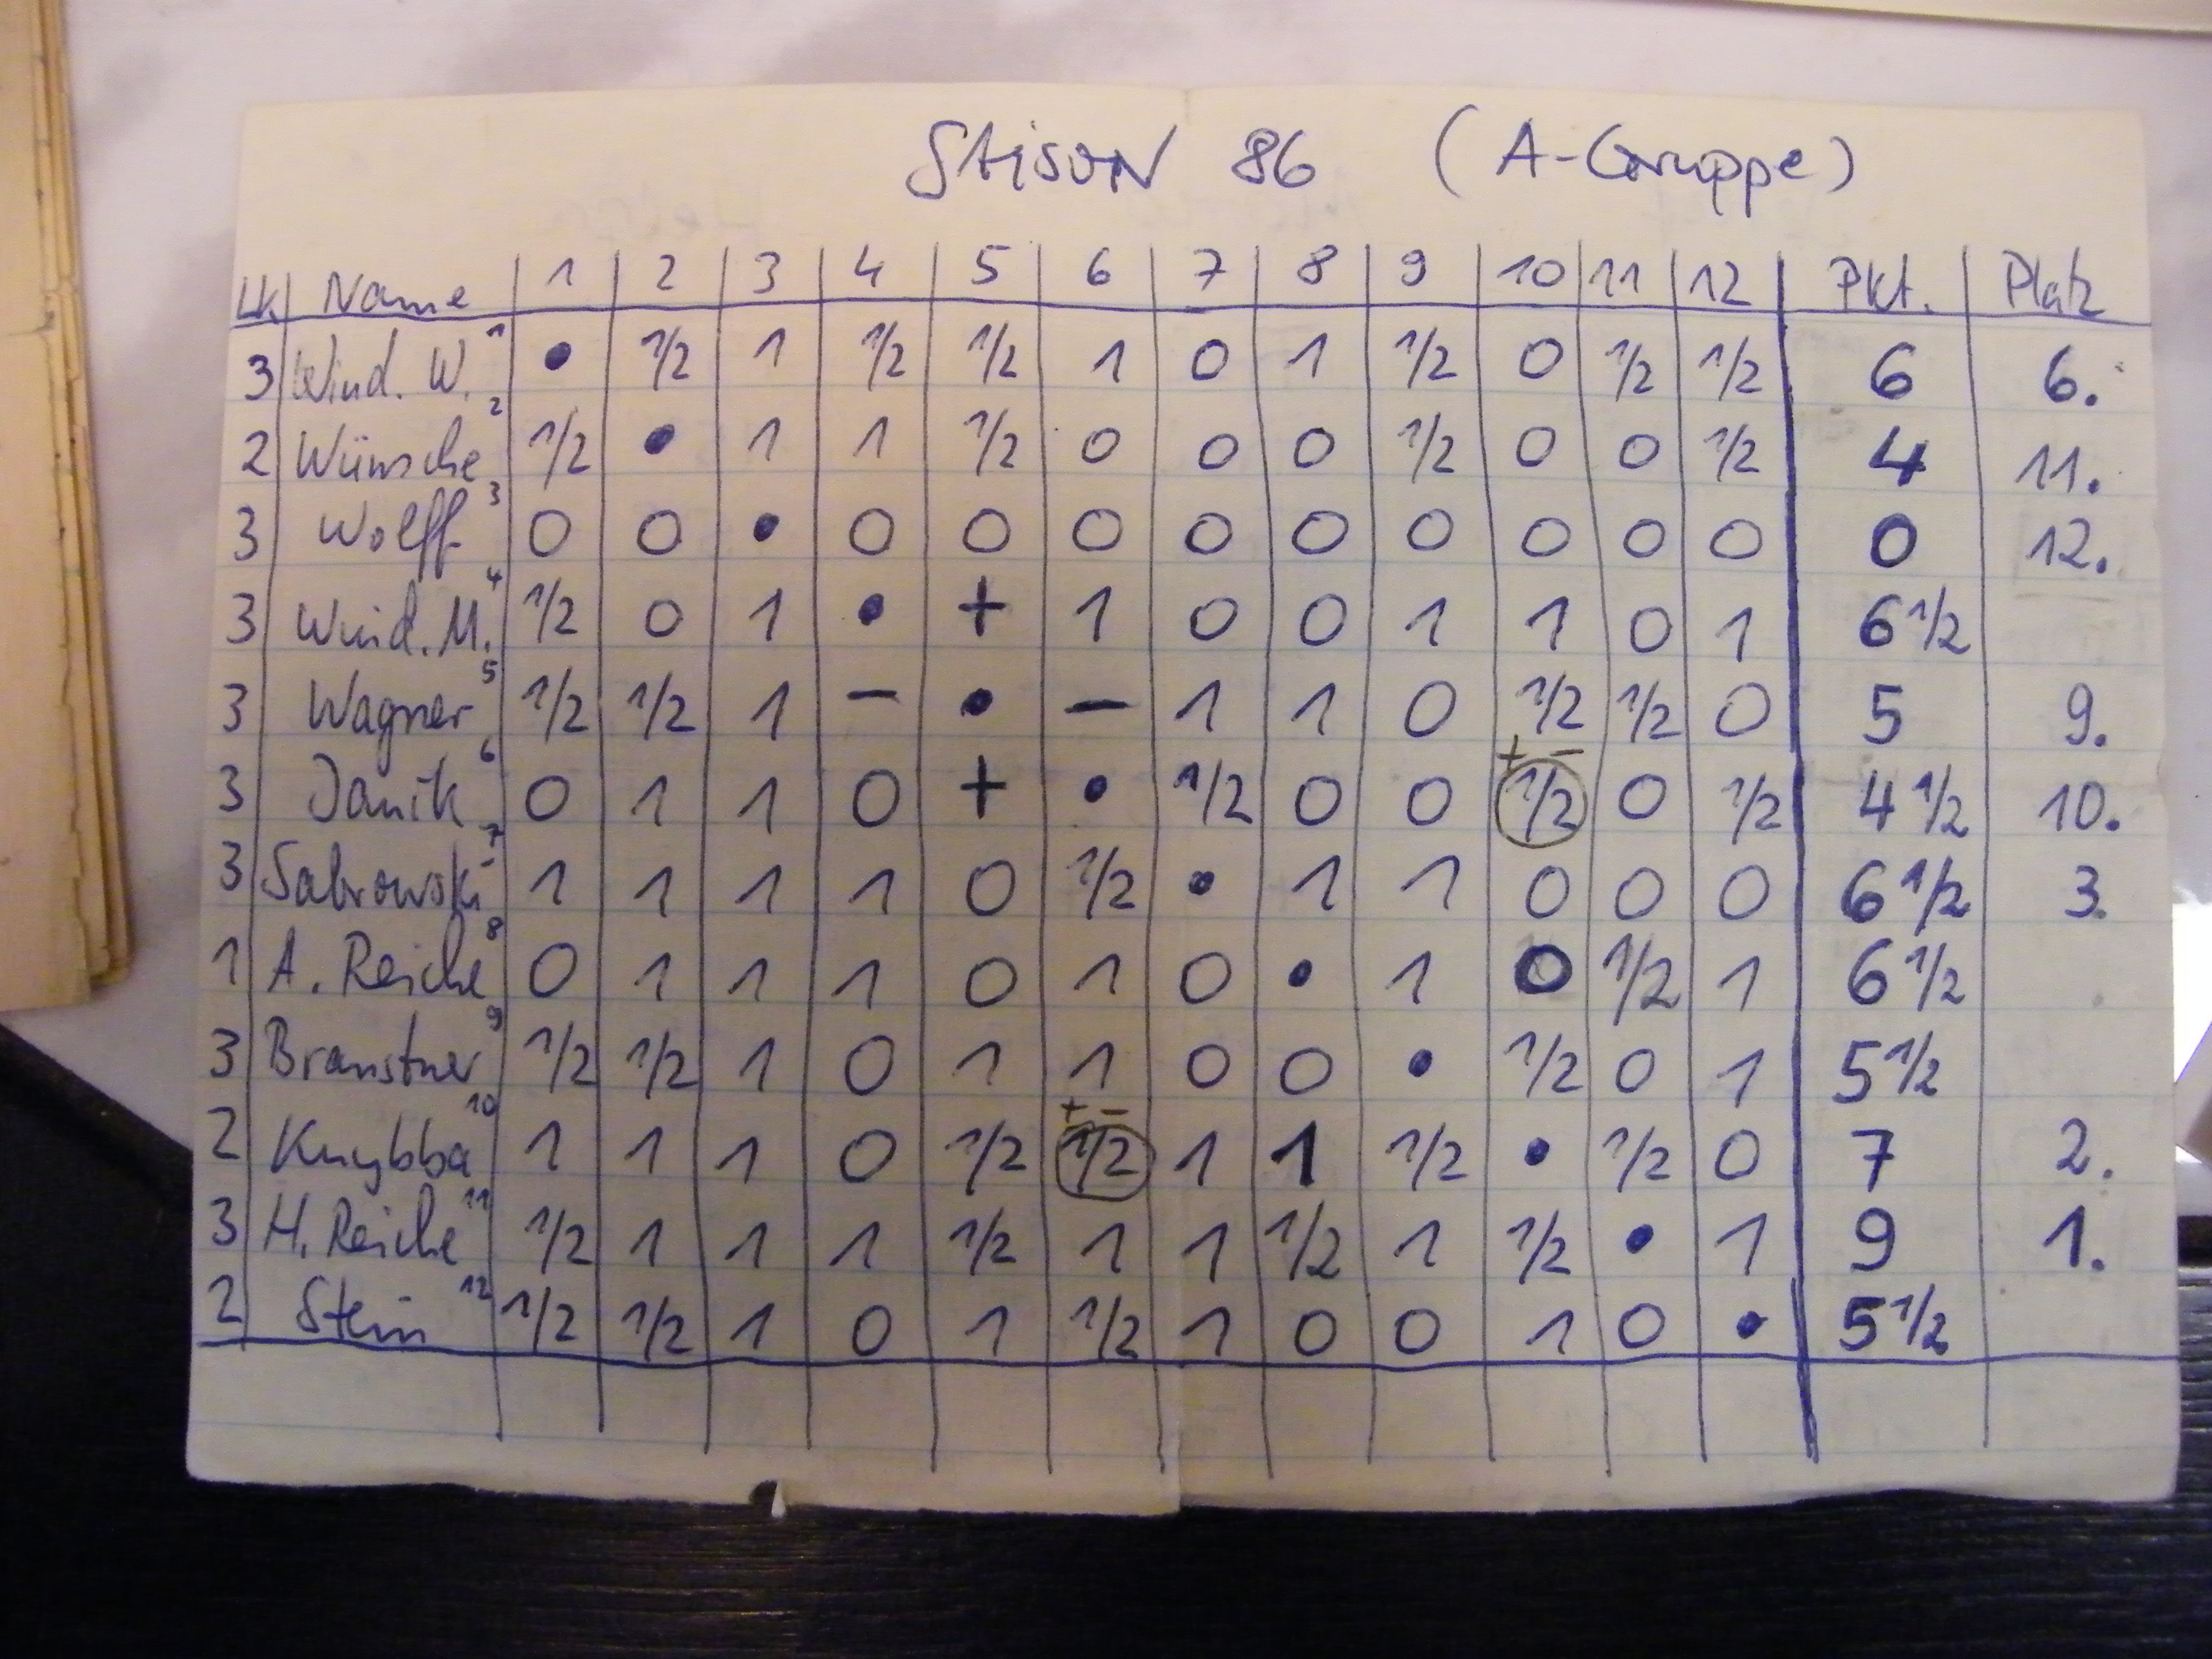 Saison 86 (A-Gruppe)
LK Name 1 2 3 4 5 6 7 8 9 10 11 12 Pkt. Platz
3 Wind. W. 1 • 1/2 1 1/2 1/2 1 0 1 1/2 0 1/2 1/2 6 6.
2 Wünsche 2 1/2 • 1 1 1/2 0 0 0 1/2 0 0 1/2 4 11.
3 Wolff 3 0 0 • 0 0 0 0 0 0 0 0 0 0 12.
3 Wind. M. 4 1/2 0 1 • + 1 0 0 1 1 0 1 6 1/2
3 Wagner 5 1/2 1/2 1 – • – 1 1 0 1/2 1/2 0 5 9.
3 Janik 6 0 1 1 0 + • 1/2 0 0 + – 1/2 0 1/2 4 1/2 10.
3 Sabrowski 7 1 1 1 1 0 1/2 • 1 1 0 0 0 6 1/2 3.
1 A. Reiche 8 0 1 1 1 0 1 0 • 1 0 1/2 1 6 1/2
3 Branstner 9 1/2 1/2 1 0 1 1 0 0 • 1/2 0 1 5 1/2
2 Knybba 10 1 1 1 0 1/2 + – 1/2 1 1 1/2 • 1/2 0 7 2.
3 H. Reiche 11 1/2 1 1 1 1/2 1 1 1/2 1 1/2 • 1 9 1.
2 Stein 12 1/2 1/2 1 0 1 1/2 1 0 0 1 0 • 5 1/2